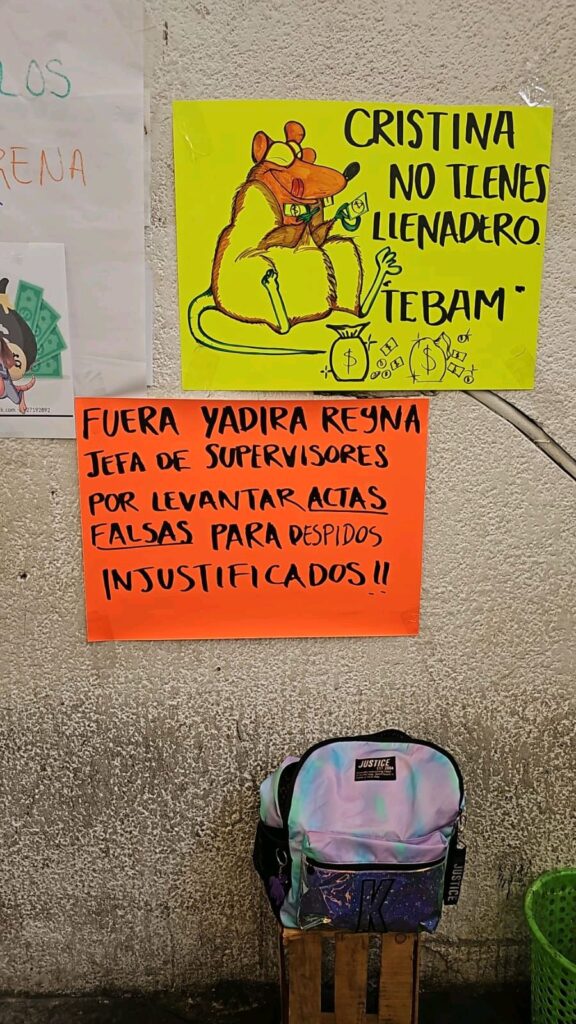 LOS
RENA
CRISTINA
NO TIENES
LLENADERO.
"TEBAM"
FUERA YADIRA REYNA
JEFA DE SUPERVISORES
POR LEVANTAR ACTAS
FALSAS PARA DESPIDOS
INJUSTIFICADOS!!
JUSTICE
K
JUSTICE